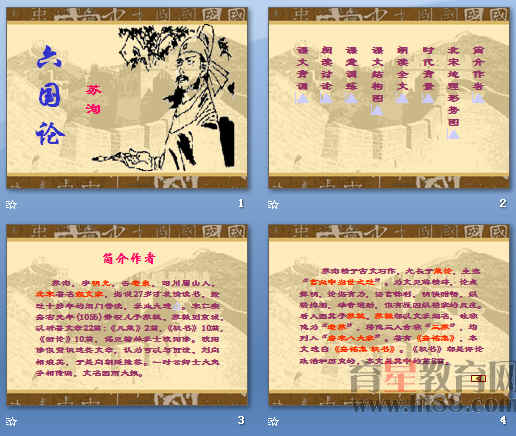 六国论
苏洵
1
简介作者
北宋地理形势图
时代背景
朗读全文
课文结构图
阅读讨论
课文背诵
2
简介作者
苏洵，字明允，号老泉，四川眉山人，
北宋著名散文家，据说27岁才发愤读书，经
过十多年的闭门苦读，学业大进。宋仁宗
嘉右元年(1056)带领儿子苏轼、苏辙到京城，
以所著文章22篇：《几策》2篇，《权书》10篇，
《衡论》10篇，谒见翰林学士欧阳修。欧阳
修很赏识这些文章，认为可以与贾谊、刘向
相媲美，于是向朝廷推荐。一时公卿士大夫
争相传诵，文名因而大振。
3
苏洵精于古文写作，尤长于策论，主张
“言必中当世之过”。为文见解精辟，论点
鲜明，论据有力，语言锋利，明快酣畅，纵
后人因其子苏轼、苏辙都以文学闻名，故宗
他为“老苏”，将他三人合称“三苏”，均
列入“唐宋八大家”。著有《嘉祐集》，本
文选自《嘉祐集·权书》。《权书》都是评论
4
育星教育网
www.ht88.com